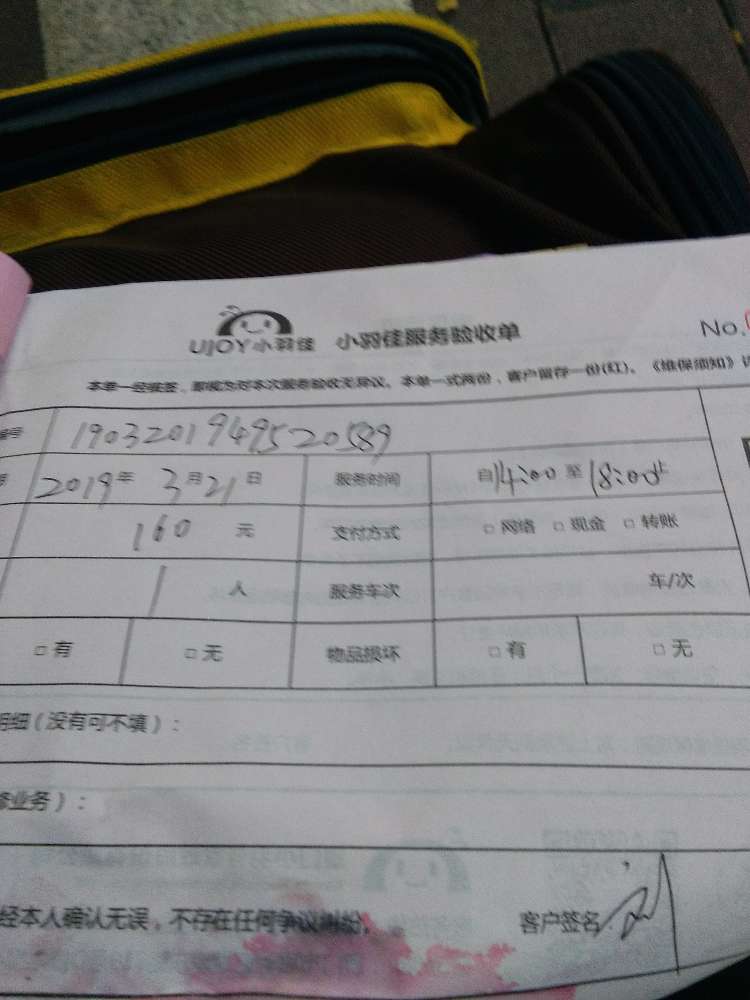 UJOY小羽佳 小羽佳服务验收单 No.
本单一经接签，即视为对本次服务验收无异议。本单一式两份，客户留存一份(红)。《维保须知》
编号 1903201949520589
2019年3月21日 服务时间 自14:00至18:00止
160元 支付方式 □ 网络 □ 现金 □ 转账
1人 服务车次 车/次
□ 有 □ 无 物品损坏 □ 有 □ 无
明细（没有可不填）：
修业务）：
经本人确认无误，不存在任何争议纠纷。 客户签名